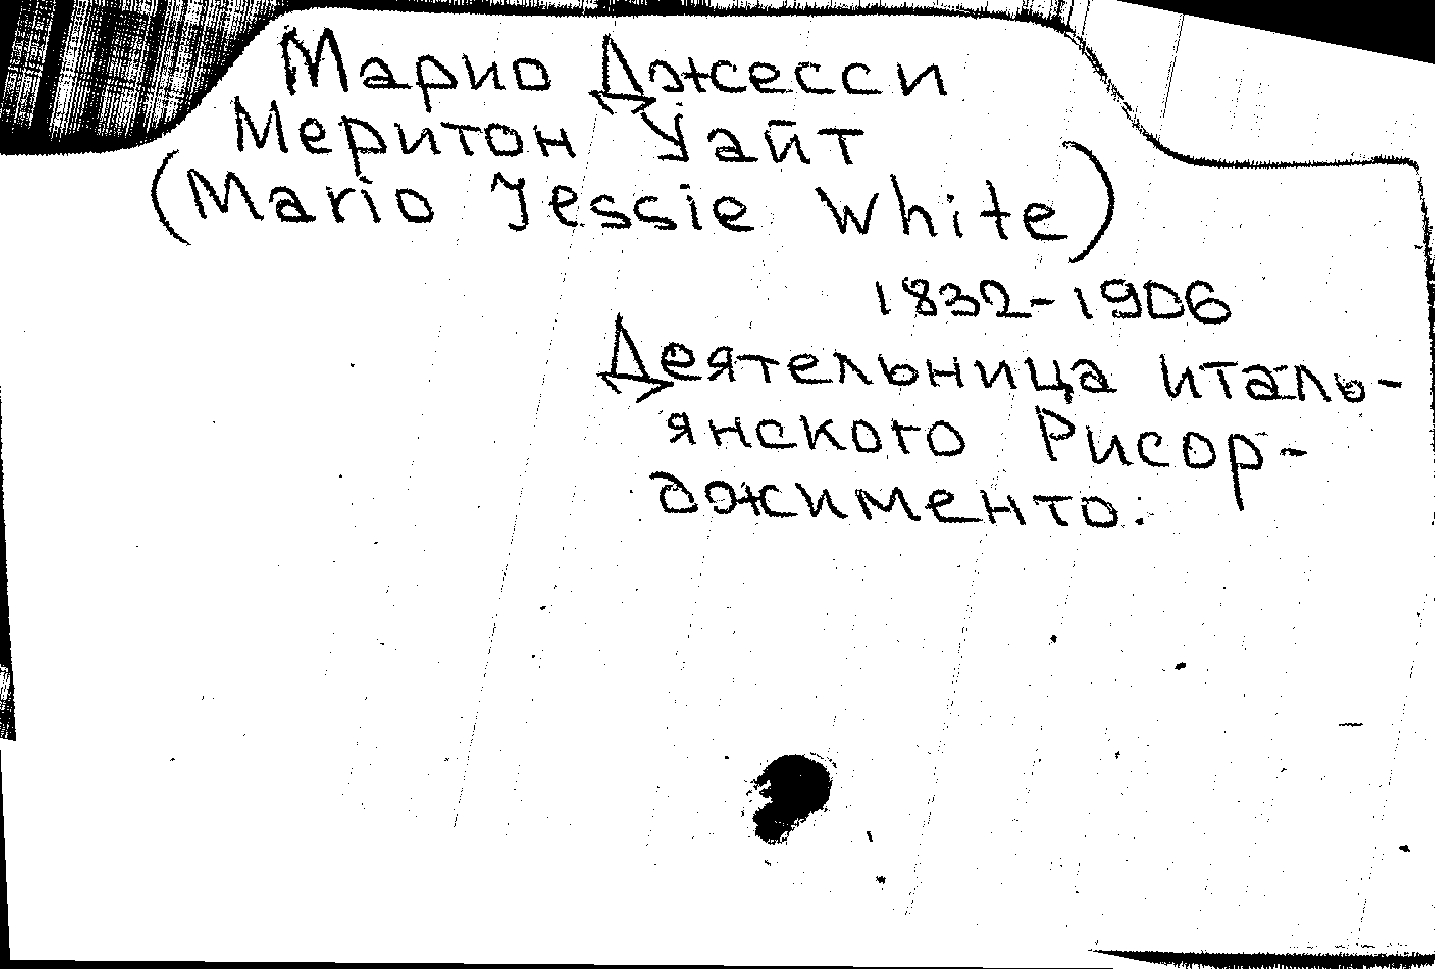 Марио Джесси
Меритон Уайт
(Mario Jessie White)
1832-1906
Деятельница италь-
янского Рисор-
джименто.